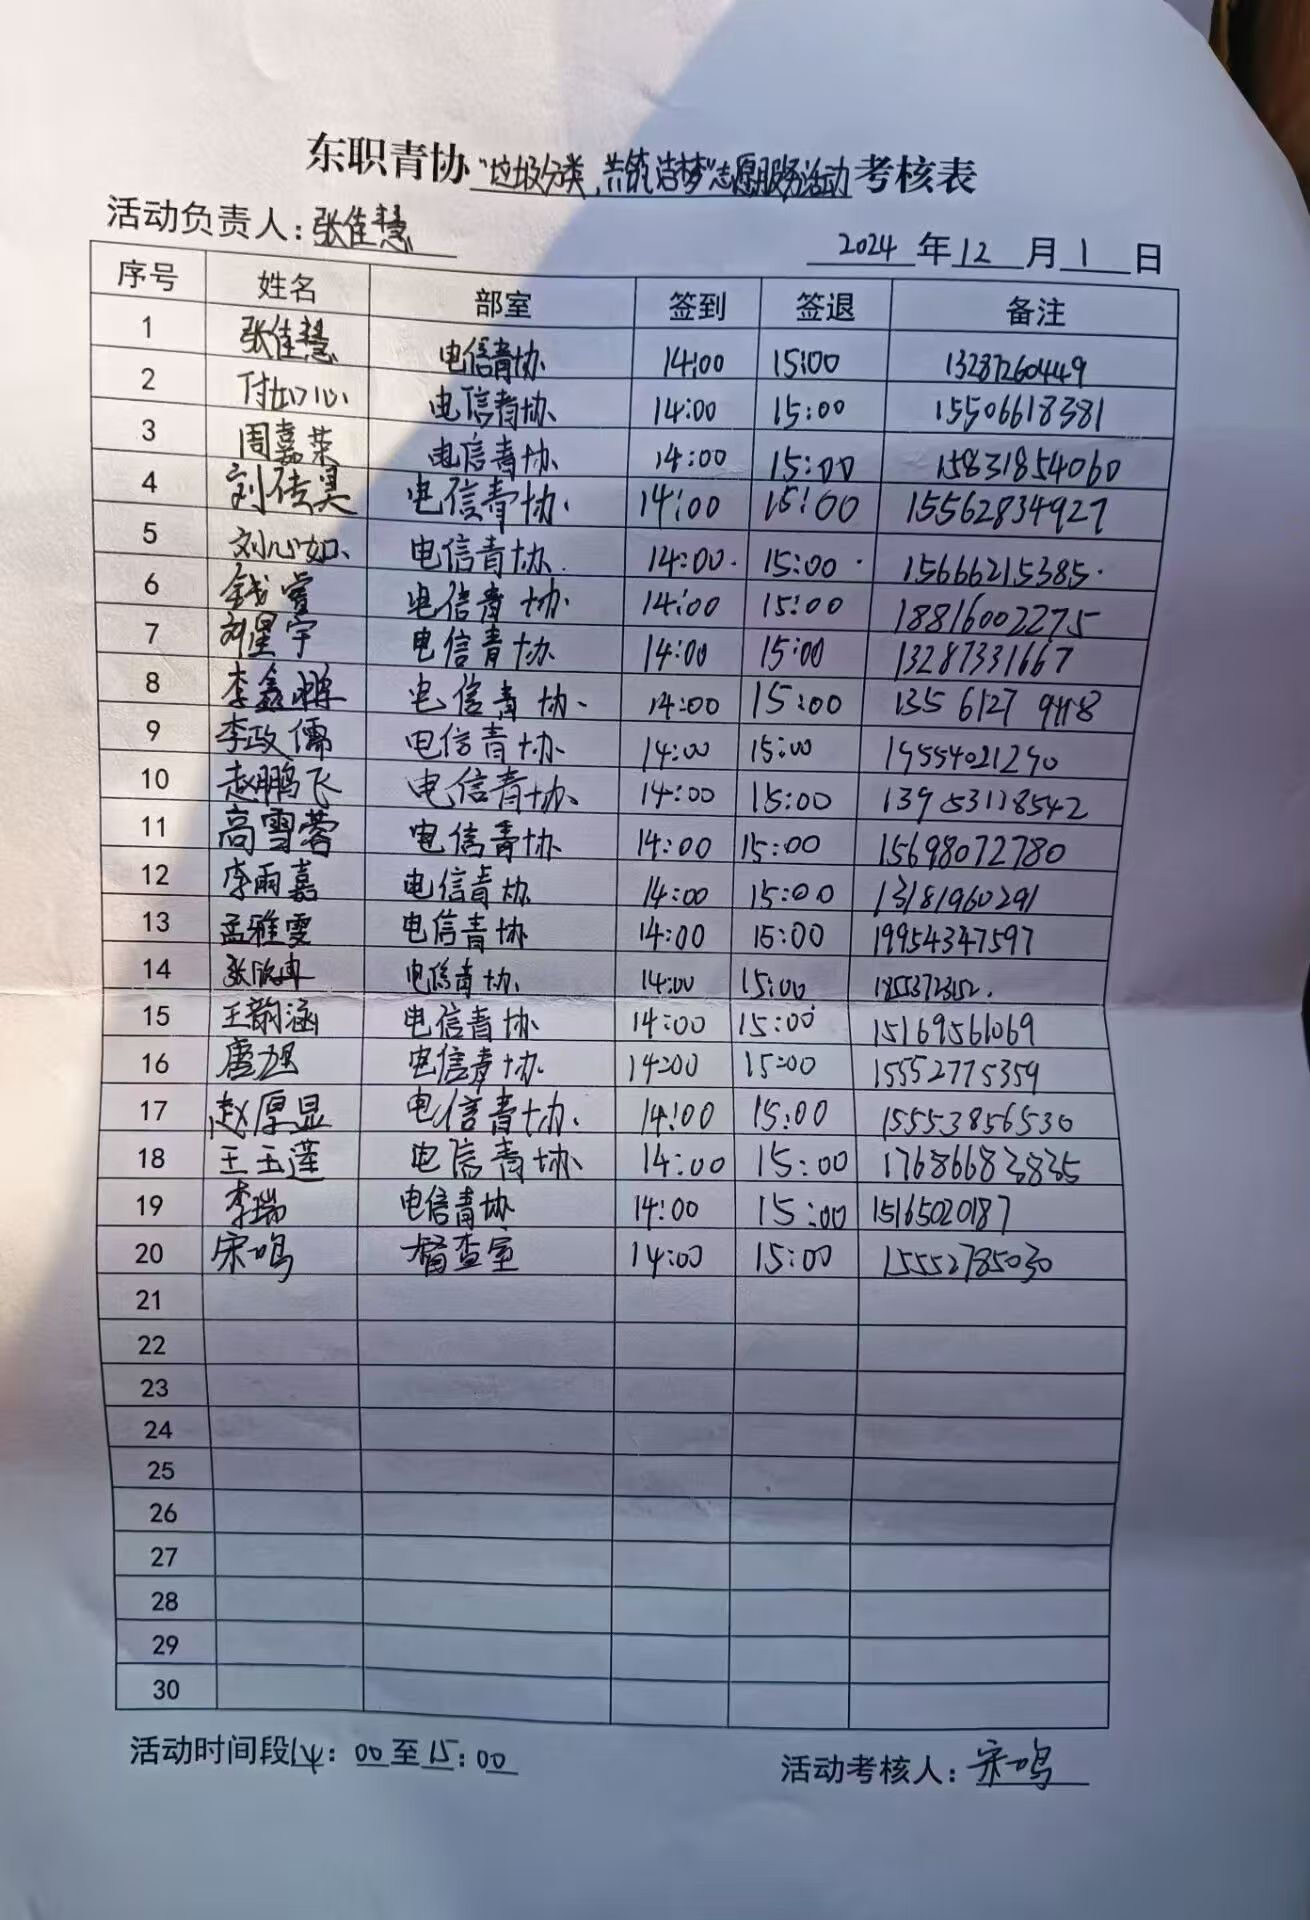 东职青协"垃圾分类,共筑洁梦"志愿服务活动考核表
活动负责人:张佳慧
2024年12月1日
序号 姓名 部室 签到 签退 备注
1 张佳慧 电信青协 14:00 15:00 13287260449
2 付如心 电信青协 14:00 15:00 15506618381
3 周嘉荣 电信青协 14:00 15:00 15831854060
4 刘倩昊 电信青协 14:00 15:00 15562834927
5 刘心如 电信青协 14:00 15:00 15666215385
6 钱睿 电信青协 14:00 15:00 18816002275
7 刘星宇 电信青协 14:00 15:00 13287331667
8 李鑫 电信青协 14:00 15:00 135 6127
9 李政儒 电信青协 14:00 15:00 19554021290
10 赵鹏飞 电信青协 14:00 15:00 13953118542
11 高雪蓉 电信青协 14:00 15:00 15698072780
12 李雨嘉 电信青协 14:00 15:00 13181960291
13 孟雅雯 电信青协 14:00 15:00 19954347597
14 电信青协 14:00 15:00
15 王韵涵 电信青协 14:00 15:00 15169561069
16 唐旭 电信青协 14:00 15:00 15552775359
17 赵厚显 电信青协 14:00 15:00 15553856530
18 王玉莲 电信青协 14:00 15:00 17686683835
19 李瑞 电信青协 14:00 15:00 15165020187
20 宋鸣 督查室 14:00 15:00 15552785030
21
22
23
24
25
26
27
28
29
30
活动时间段14:00至15:00
活动考核人:宋鸣